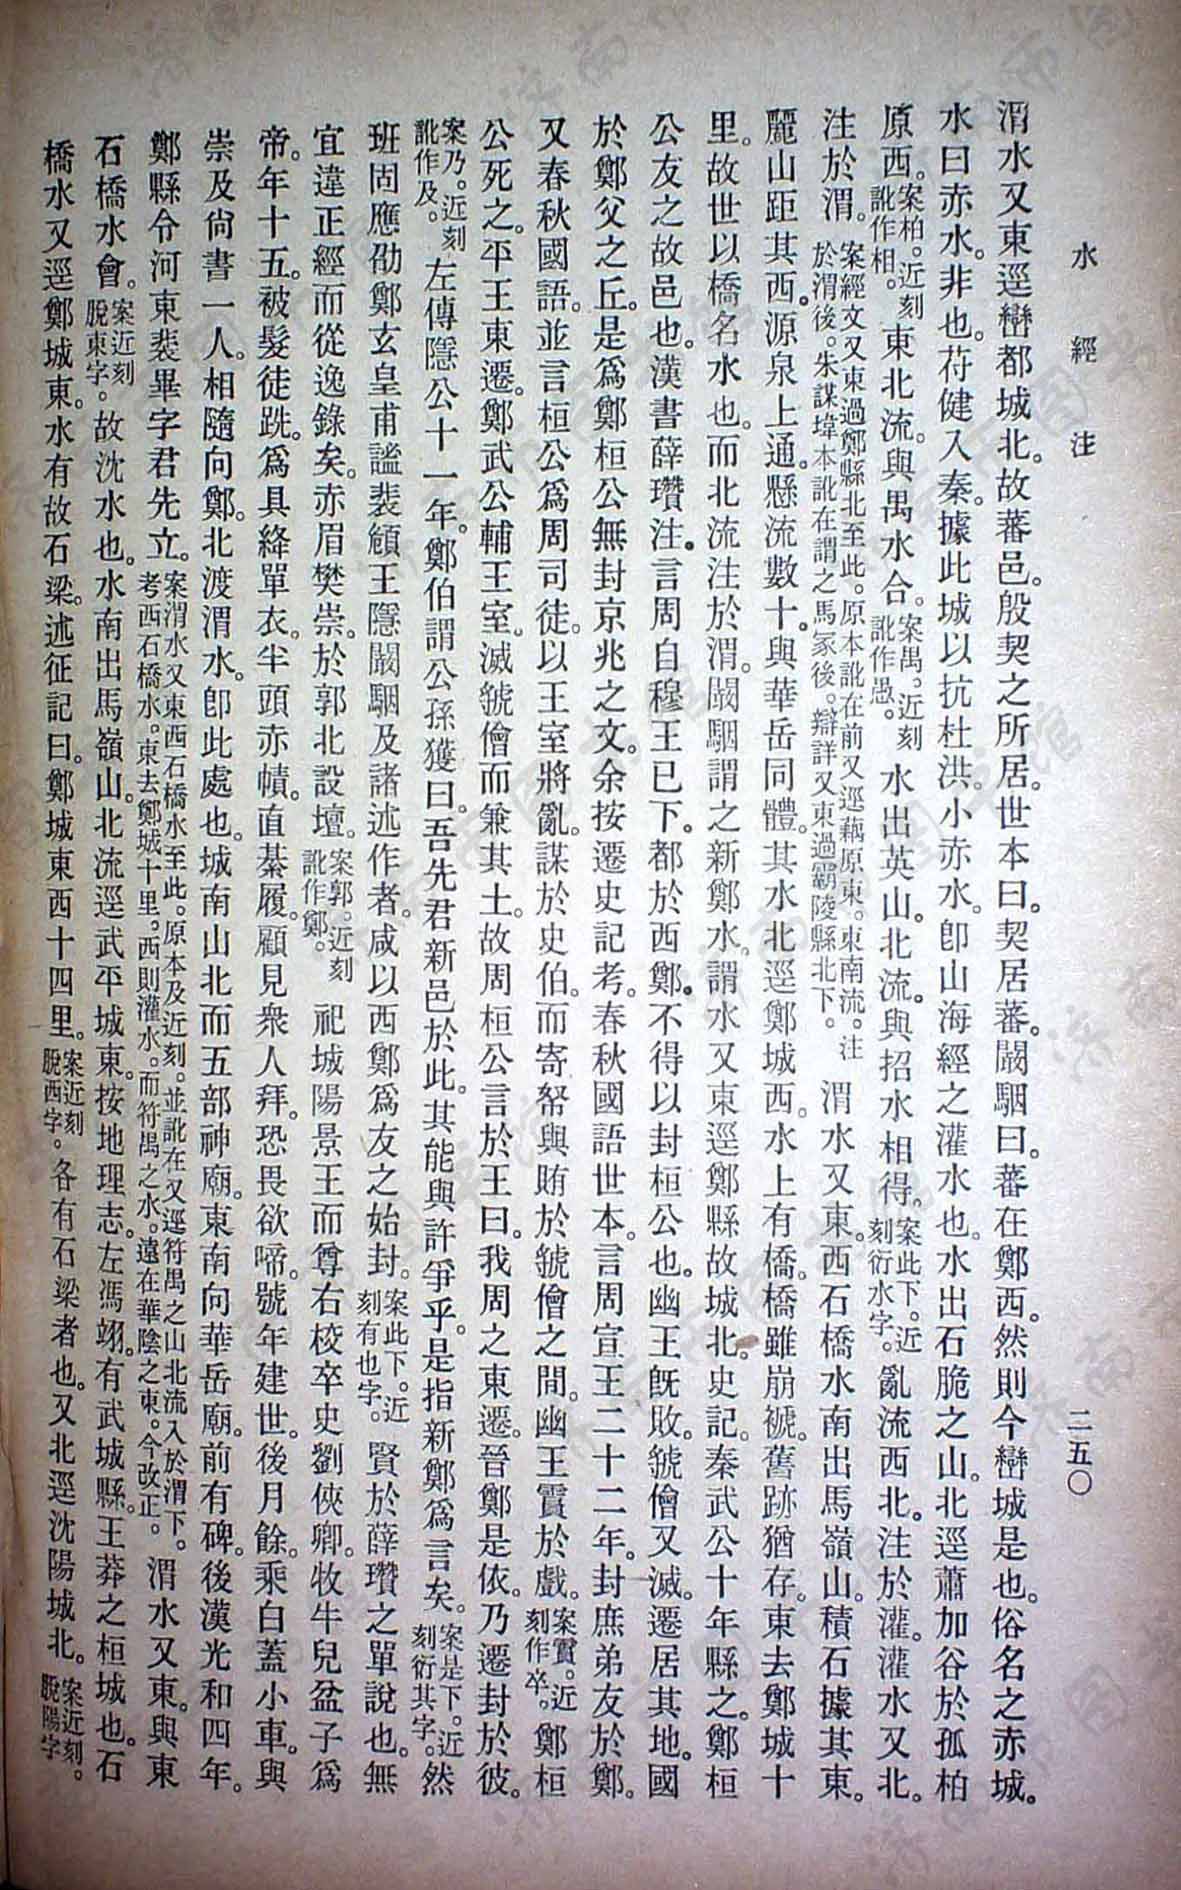 水經注
二五〇
渭水又東逕巒都城北。故蕃邑。殷契之所居。世本曰。契居蕃。闞駰曰。蕃在鄭西。然則今巒城是也。俗名之赤城。
水曰赤水。非也。苻健入秦。據此城以抗杜洪。小赤水。卽山海經之灌水也。水出石脆之山。北逕蕭加谷於孤柏
原西。案柏。近刻訛作相。東北流。與禺水合。案禺。近刻訛作愚。水出英山。北流。與招水相得。案此下。近刻衍水字。亂流西北。注於灌。灌水又北。
注於渭。案經文又東過鄭縣北至此。原本訛在前又逕藕原東。東南流。注於渭後。朱謀㙔本訛在謂之馬冢後。辯詳又東過霸陵縣北下。渭水又東。西石橋水南出馬嶺山。積石據其東。
麗山距其西。源泉上通。懸流數十。與華岳同體。其水北逕鄭城西。水上有橋。橋雖崩褫。舊跡猶存。東去鄭城十
里。故世以橋名水也。而北流注於渭。闞駰謂之新鄭水。謂水又東逕鄭縣故城北。史記。秦武公十年縣之。鄭桓
公友之故邑也。漢書薛瓚注。言周自穆王已下。都於西鄭。不得以封桓公也。幽王旣敗。虢儈又滅。遷居其地。國
於鄭父之丘。是爲鄭桓公無封京兆之文。余按遷史記考。春秋國語世本。言周宣王二十二年。封庶弟友於鄭。
又春秋國語。並言桓公爲周司徒。以王室將亂。謀於史伯。而寄帑與賄於虢儈之間。幽王霣於戲。案霣。近刻作卒。鄭桓
公死之。平王東遷。鄭武公輔王室。滅虢儈而兼其土。故周桓公言於王曰。我周之東遷。晉鄭是依。乃遷封於彼。
案乃。近刻訛作及。左傳隱公十一年。鄭伯謂公孫獲曰。吾先君新邑於此。其能與許爭乎。是指新鄭爲言矣。案是下。近刻衍其字。然
班固應劭鄭玄皇甫謐裴頠王隱闞駰及諸述作者。咸以西鄭爲友之始封。案此下。近刻有也字。賢於薛瓚之單說也。無
宜違正經而從逸錄矣。赤眉樊崇。於郭北設壇。案郭。近刻訛作鄭。祀城陽景王而尊右校卒史劉俠卿。牧牛兒盆子爲
帝。年十五。被髮徒跣。爲具絳單衣。半頭赤幘。直綦履。顧見衆人拜。恐畏欲啼。號年建世。後月餘。乘白蓋小車。與
崇及尙書一人。相隨向鄭。北渡渭水。卽此處也。城南山北而五部神廟。東南向華岳廟。前有碑。後漢光和四年。
鄭縣令河東裴畢字君先立。案渭水又東西石橋水至此。原本及近刻。並訛在又逕符禺之山北流入於渭下。考西石橋水。東去鄭城十里。西則灌水。而符禺之水。遠在華陰之東。今改正。渭水又東。與東
石橋水會。案近刻脫東字。故沈水也。水南出馬嶺山。北流逕武平城東。按地理志。左馮翊。有武城縣。王莽之桓城也。石
橋水又逕鄭城東。水有故石梁。述征記曰。鄭城東西十四里。案近刻脫西字。各有石梁者也。又北逕沈陽城北。案近刻。脫陽字